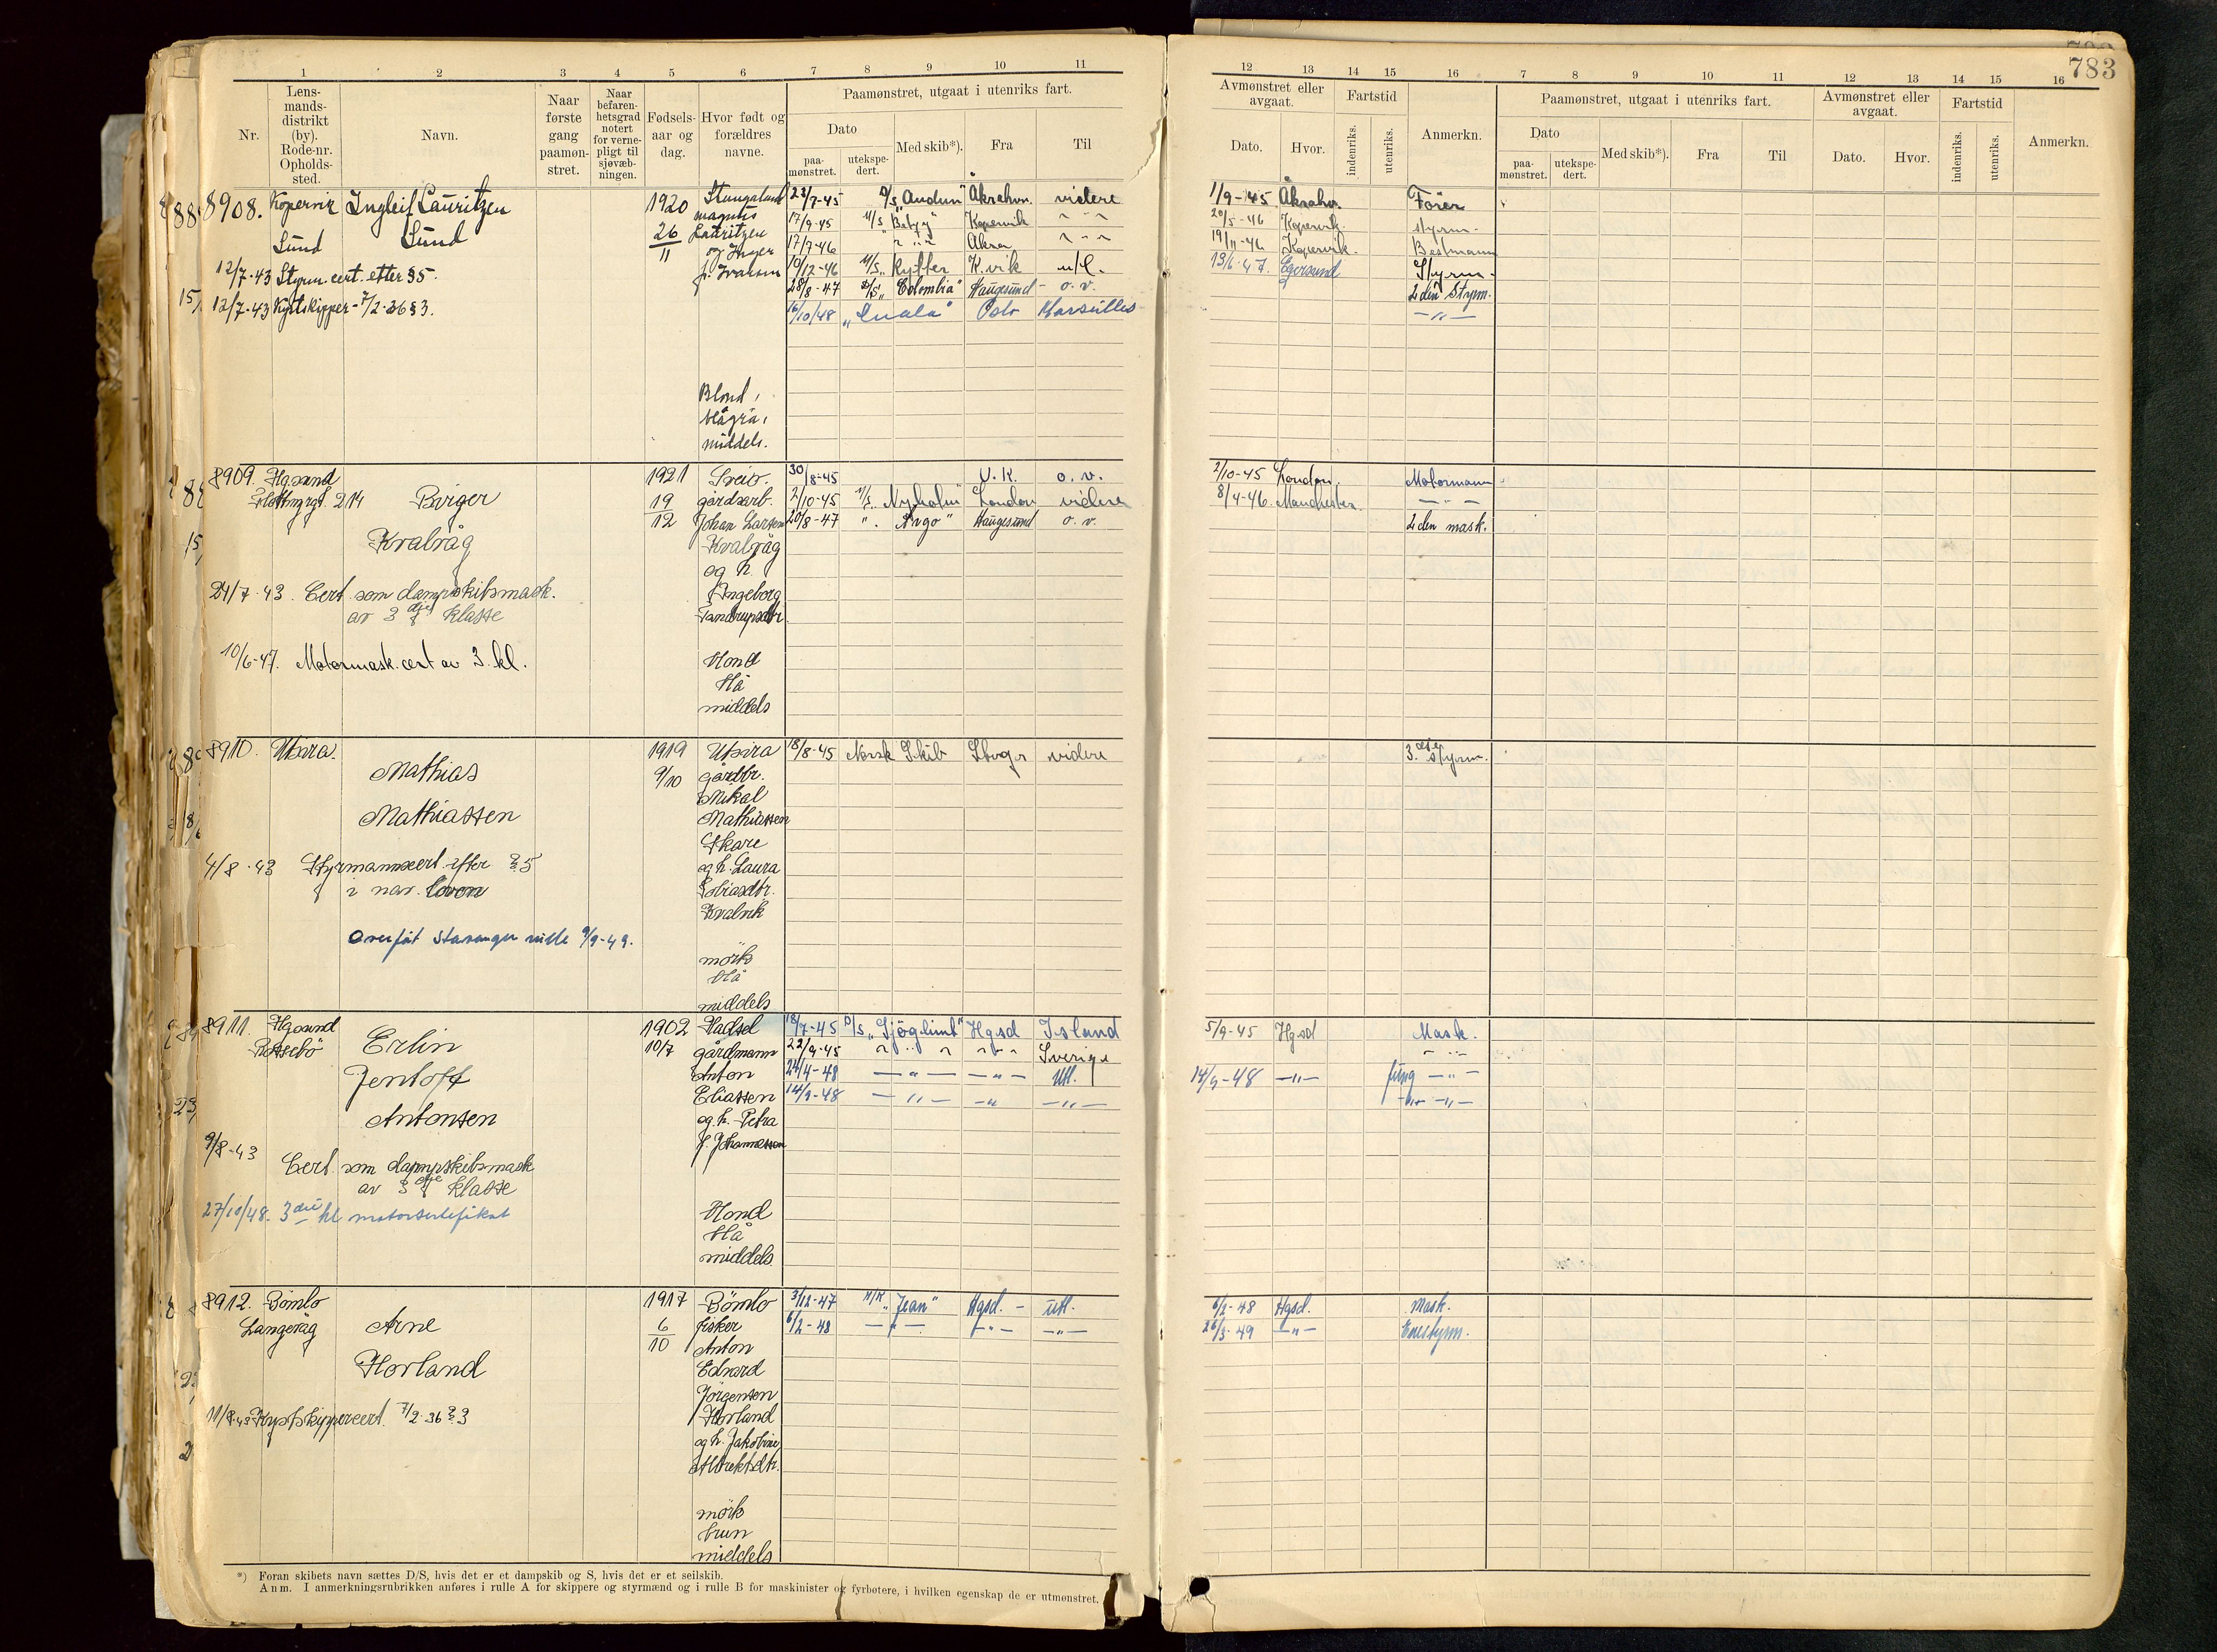 783
1 2 3 4 5 6 7 8 9 10 11
12 13 14 15 16 7 8 9 10 11 12 13 14 15 16
Nr.
Lens-
mands-
distrikt
(by).
Rode-nr.
Opholds-
sted.
Navn.
Naar
første
gang
paamøn-
stret.
Naar
befaren-
hetsgrad
notert
for verne-
pligt til
sjøvæb-
ningen.
Fødsels-
aar og
dag.
Hvor født og
forældres
navne.
Paamønstret, utgaat i utenriks fart.
Dato
paa-
mønstret.
utekspe-
dert.
Med skib*).
Fra
Til
Avmønstret eller
avgaat.
Dato.
Hvor.
Fartstid
indenriks.
utenriks.
Anmerkn.
Paamønstret, utgaat i utenriks fart.
Dato
paa-
mønstret.
utekspe-
dert.
Med skib*).
Fra
Til
Avmønstret eller
avgaat.
Dato.
Hvor.
Fartstid
indenriks.
utenriks.
Anmerkn.
8908. Kopervik Ingleif Lauritzen 1920 Stangaland 23/7-45 "Audun" Åkrahvn. videre 1/9-45 Åkrahvn. Fører
magnus 17/9-45 M/S "Betzy" Kopervik " " " 20/5-46 Kopervik. styrm.
Sund Sund 26/11 Lauritzen 17/7-46 " " " Åkra " " " 19/11-46 Kopervik. Bestmann
og Inger 19/12-46 M/S "Rytter" K.vik utl. 13/6-47. Egersund Styrm.
12/7-43 Styrm. cert. etter §5. f. Ivarsen 28/8-47 "Colombia" Haugesund - o. v. 2den Styrm.
12/7-43 Kystskipper - 7/2-36 §3. 16/10/48 Oslo Marseilles - " -
Blond,
blågrå,
middels.
8909. Hgsund 1921 Sveio. 30/8-45 U.K. o. v. 2/10-45 London. Motormann
214 Birger 19 gårdsarb. 2/10-45 M/S "Nyholm" London videre 8/4-46 Manchester. - " -
12 Johan Larsen 20/8-47 " "Argo" Haugesund o. v. 2den mask.
Kvalvåg Kvalvåg
og h.
24/7-43. Cert. som dampskibsmask. Ingeborg
av 3dje klasse
10/6-47. Motormask. cert av 3. kl. blond
blå
middels
8910. Utsira. 1919 Utsira 18/8-45 Norsk Skib Stvgr videre 3.dje styrm.
Mathias 9/10 gårdbr.
Mikal
Mathiassen Mathiassen
Skare
4/8-43 Styrmannscert. efter §5 og h. Laura
i nav. loven Tobiasdtr.
Kvalvik
Overført Stavanger rulle 9/9-49.
mørk
blå
middels
8911. Hgsund 1902 Hadsel 18/7-45 D/S "Sjøglimt" Hgsd Island 5/9-45 Hgsd Mask.
Røssebø Erlin 10/7 gårdmann 22/9-45 " " " " Sverige " "
Jentoft Anton 24/4-48 - " - - " - Utl. 14/9-48 - " - fung - " -
Eliassen 14/9-48 - " - - " - " - - " - " -
Antonsen og h. Petra
9/8-43 f. Johannessen
Cert. som dampskibsmask
av 3dje klasse
27/10/48. 3die kl motorsertifikat blond
blå
middels.
8912. Bømlo 1917 Bømlo 3/12-47 M/K "Jean" Hgsd. - utl. 6/2-48 Hgsd. Mask.
Langevåg Arne 6/10 fisker 6/2-48 - " - - " - - " - 26/3-49 - " - Enestyrm.
Anton
Horland Edvard
Jørgensen
11/8-43 Kystskippercert. 7/2-36 §3 Horland
og h. Jakobine
mørk
brun
middels
*) Foran skibets navn sættes D/S, hvis det er et dampskib og S, hvis det er et seilskib.
Anm. I anmerkningsrubrikken anføres i rulle A for skippere og styrmænd og i rulle B for maskinister og fyrbøtere, i hvilken egenskap de er utmønstret.